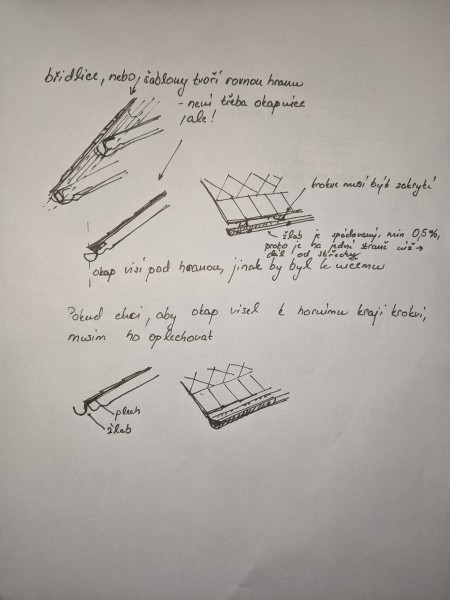 břidlice, nebo šablony tvoří rovnou hranu
- není třeba okapnice
, ale!
krokve musí být zakrytí
žlab je spádovaný, min 0,5%,
proto je na jedné straně níž →
dál od střechy
okap visí pod hranou, jinak by byl k ničemu
Pokud chci, aby okap visel k hornímu kraji krokví,
musím ho oplechovat
plech
žlab